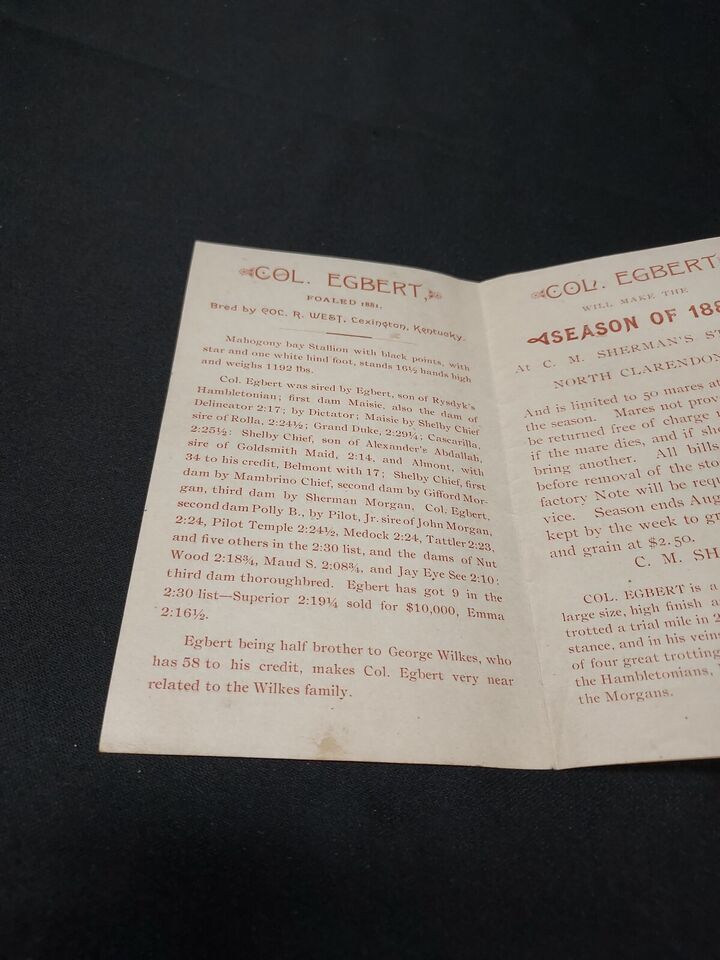 COL. EGBERT,
FOALED 1881.
Bred by COC. R. WEST, Lexington, Kentucky.
Mahogony bay Stallion with black points, with
star and one white hind foot, stands 16½ hands high
and weighs 1192 lbs.
Col. Egbert was sired by Egbert, son of Rysdyk's
Hambletonian; first dam Maisie, also the dam of
Delineator 2:17; by Dictator; Maisie by Shelby Chief
sire of Rolla, 2:24½; Grand Duke, 2:29¼; Cascarilla,
2:25½: Shelby Chief, son of Alexander's Abdallah,
sire of Goldsmith Maid, 2:14, and Almont, with
34 to his credit, Belmont with 17; Shelby Chief, first
dam by Mambrino Chief, second dam by Gifford Mor-
gan, third dam by Sherman Morgan, Col. Egbert,
second dam Polly B., by Pilot, Jr. sire of John Morgan,
2:24, Pilot Temple 2:24½, Medock 2:24, Tattler 2:23,
and five others in the 2:30 list, and the dams of Nut
Wood 2:18¾, Maud S. 2:08¾, and Jay Eye See 2:10:
third dam thoroughbred. Egbert has got 9 in the
2:30 list—Superior 2:19¼ sold for $10,000, Emma
2:16½.
Egbert being half brother to George Wilkes, who
has 58 to his credit, makes Col. Egbert very near
related to the Wilkes family.
COL. EGBERT
WILL MAKE THE
SEASON OF 188
At C. M. SHERMAN'S ST
NORTH CLARENDON
And is limited to 50 mares at
the season. Mares not prov
be returned free of charge
if the mare dies, and if she
bring another. All bills
before removal of the sto
factory Note will be requ
vice. Season ends Aug
kept by the week to gr
and grain at $2.50.
C. M. SH
COL. EGBERT is a
large size, high finish a
trotted a trial mile in 2
stance, and in his vein
of four great trotting
the Hambletonians,
the Morgans.